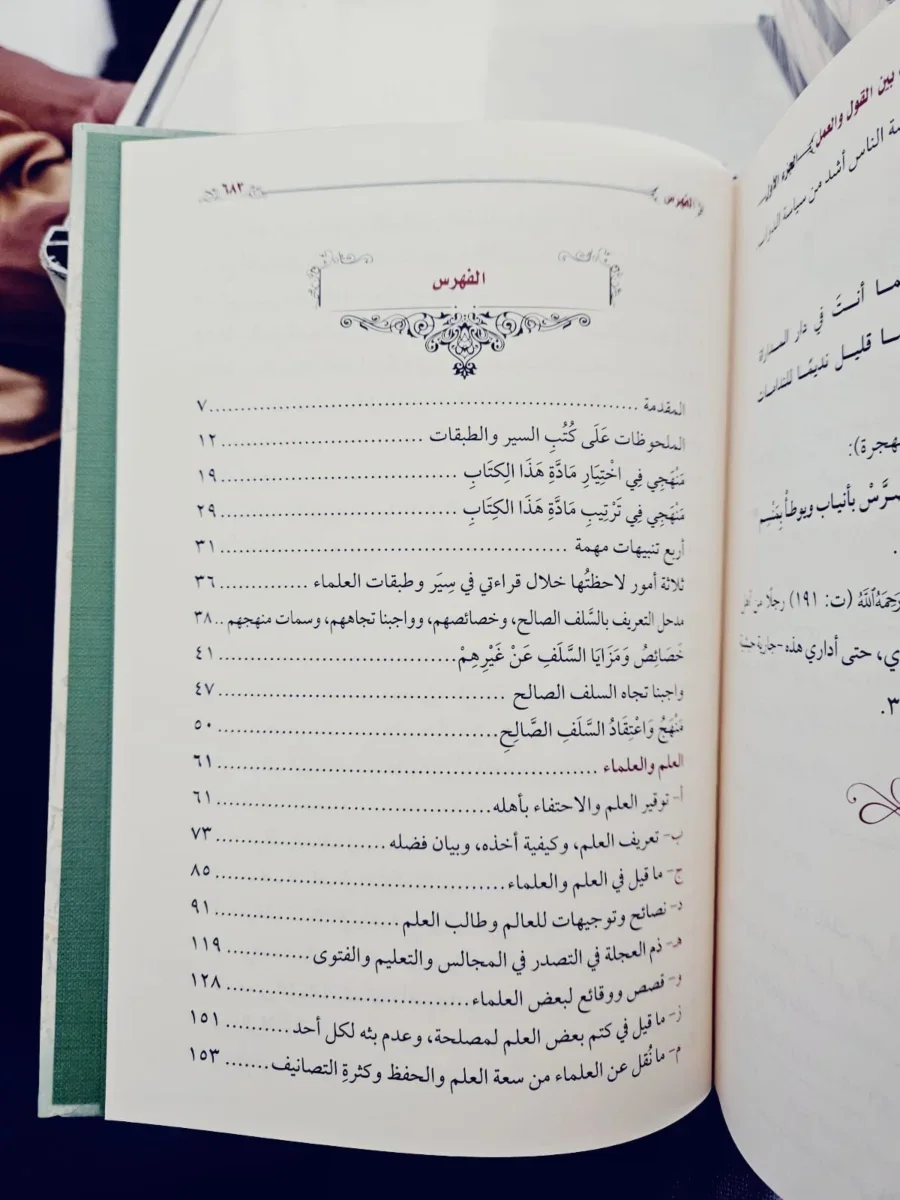 بين القول والعمل
الجزء الأول
ـة الناس أشد من سياسة الدواب
ـما أنتَ في دار المداراة
ـا قليل نديمًا للندامات
ـهجرة):
ـضرَّسْ بأنياب ويوطأْ بِمَنْسِم
رَحِمَهُ ٱللَّهُ (ت: ١٩١) رجلًا من أهل
ـي، حتى أداري هذه -جارية حبشية
٣.
الفهرس
٦٨٣
الفهرس
المقدمة ........ ٧
الملحوظات عَلَى كُتُبِ السير والطبقات ........ ١٢
مَنْهَجِي فِي اخْتِيَارِ مَادَّةِ هَذَا الِكِتَابِ ........ ١٩
مَنْهَجِي فِي تَرْتِيبِ مَادَّةِ هَذَا الِكِتَابِ ........ ٢٩
أربع تنبيهات مهمة ........ ٣١
ثلاثة أمور لاحظتُها خلال قراءتي في سِيَر وطبقات العلماء ........ ٣٦
مدخل التعريف بالسَّلف الصالح، وخصائصهم، وواجبنا تجاههم، وسمات منهجهم .. ٣٨
خَصَائِصُ وَمَزَايَا السَّلَفِ عَنْ غَيْرِهِمْ ........ ٤١
واجبنا تجاه السلف الصالح ........ ٤٧
مَنْهَجُ وَاعْتِقَادُ السَّلَفِ الصَّالِحِ ........ ٥٠
العلم والعلماء ........ ٦١
أ- توقير العلم والاحتفاء بأهله ........ ٦١
ب- تعريف العلم، وكيفية أخذه، وبيان فضله ........ ٧٣
ج- ما قيل في العلم والعلماء ........ ٨٥
د- نصائح وتوجيهات للعالم وطالب العلم ........ ٩١
هـ- ذم العجلة في التصدر في المجالس والتعليم والفتوى ........ ١١٩
و- قصص ووقائع لبعض العلماء ........ ١٢٨
ز- ما قيل في كتم بعض العلم لمصلحة، وعدم بثه لكل أحد ........ ١٥١
م- ما نُقل عن العلماء من سعة العلم والحفظ وكثرةِ التصانيف ........ ١٥٣